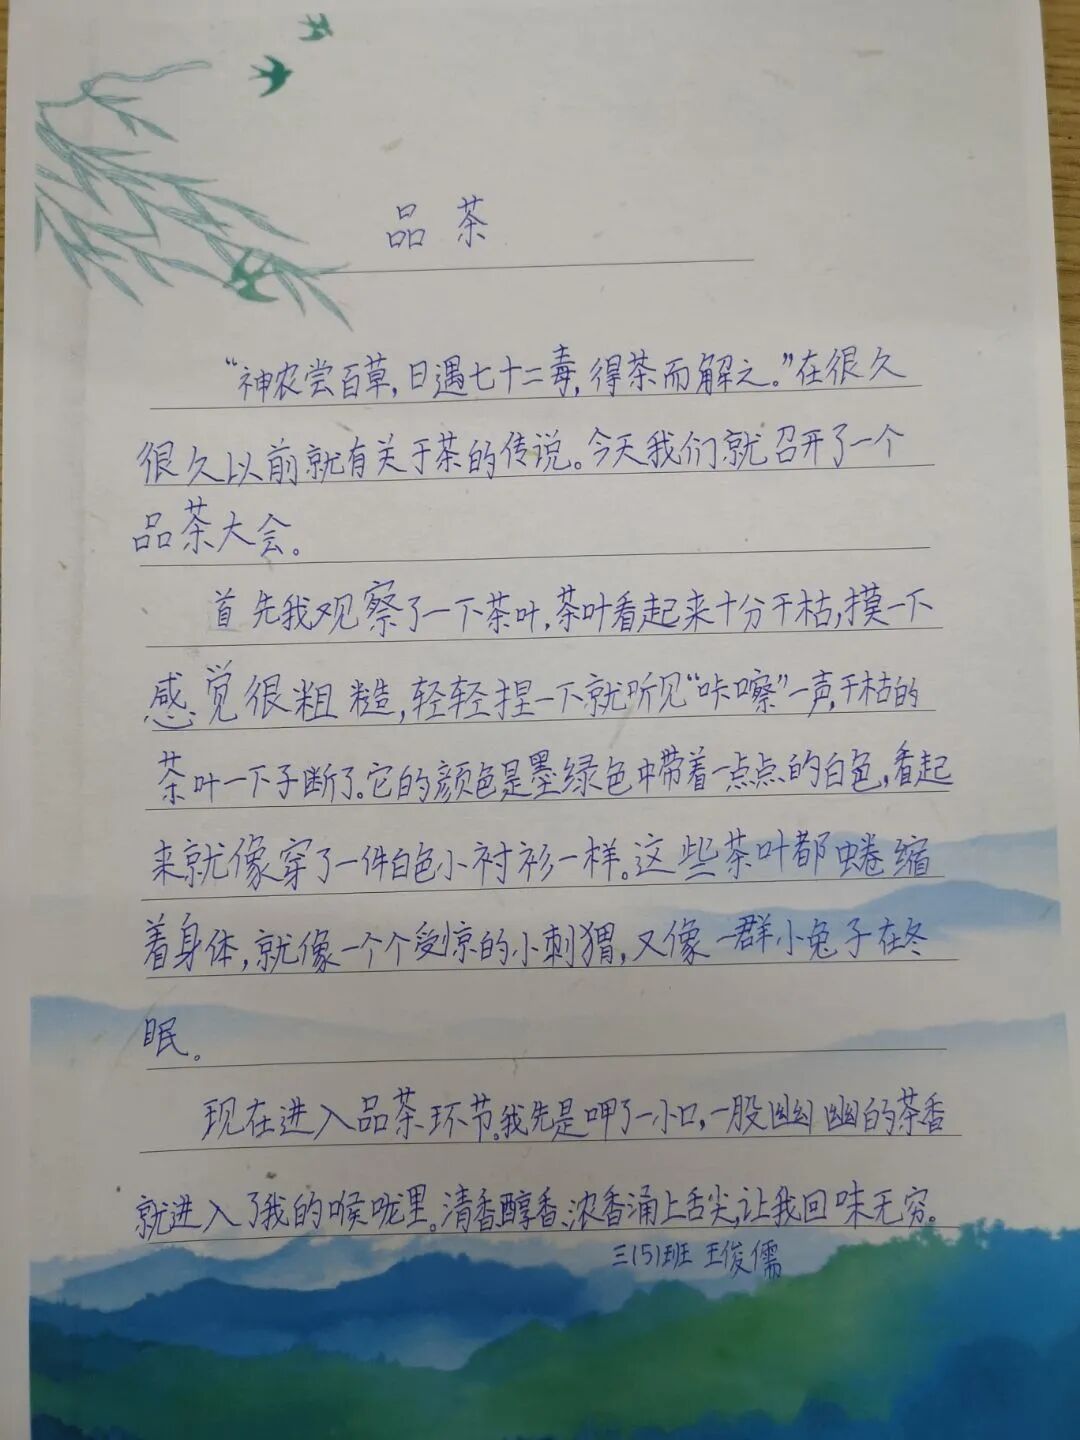 品茶
“神农尝百草，日遇七十二毒，得茶而解之。”在很久
很久以前就有关于茶的传说。今天我们就召开了一个
品茶大会。
首先我观察了一下茶叶，茶叶看起来十分干枯，摸一下
感觉很粗糙，轻轻捏一下就听见“咔嚓”一声，干枯的
茶叶一下子断了。它的颜色是墨绿色中带着一点点的白色，看起
来就像穿了一件白色小衬衫一样。这些茶叶都蜷缩
着身体，就像一个个受惊的小刺猬，又像一群小兔子在冬
眠。
现在进入品茶环节。我先是呷了一小口，一股幽幽的茶香
就进入了我的喉咙里。清香醇香、浓香涌上舌尖，让我回味无穷。
三(5)班 王俊儒